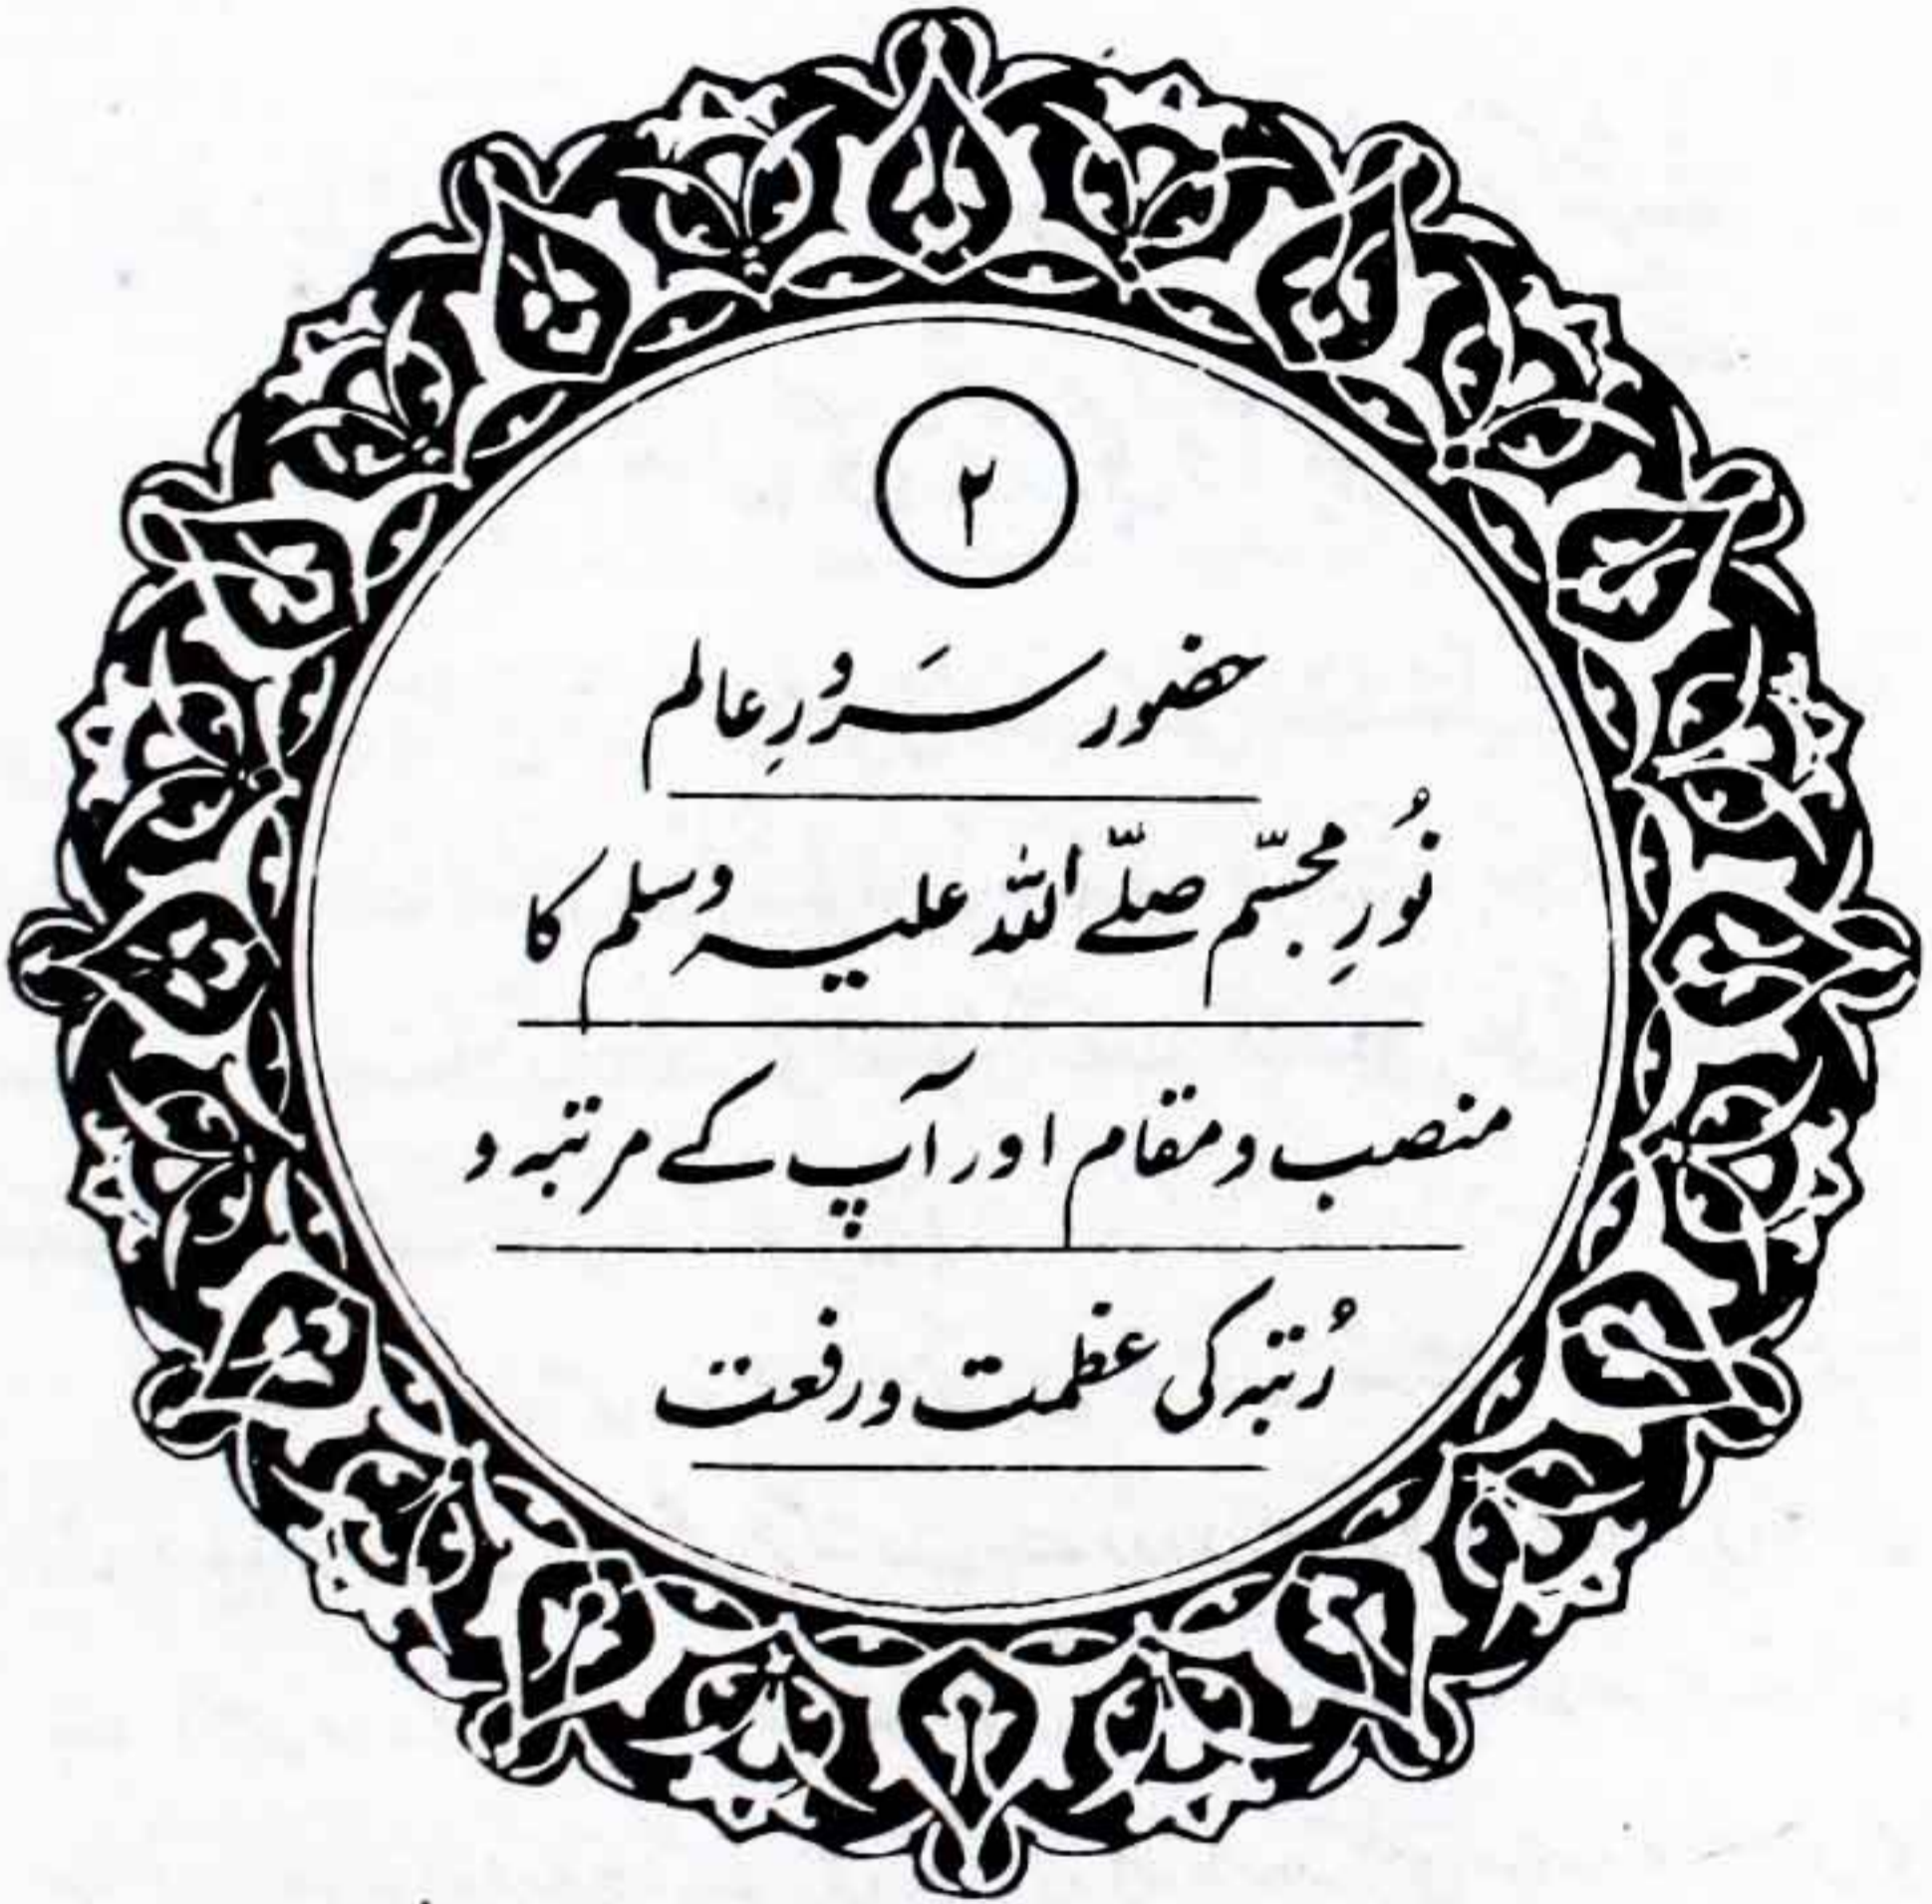 ۲
حضور سَرورِ عالم
نُورِ مجسّم صلّے اللہ علیہ وسلم کا
منصب و مقام اور آپ کے مرتبہ و
رُتبہ کی عظمت و رفعت